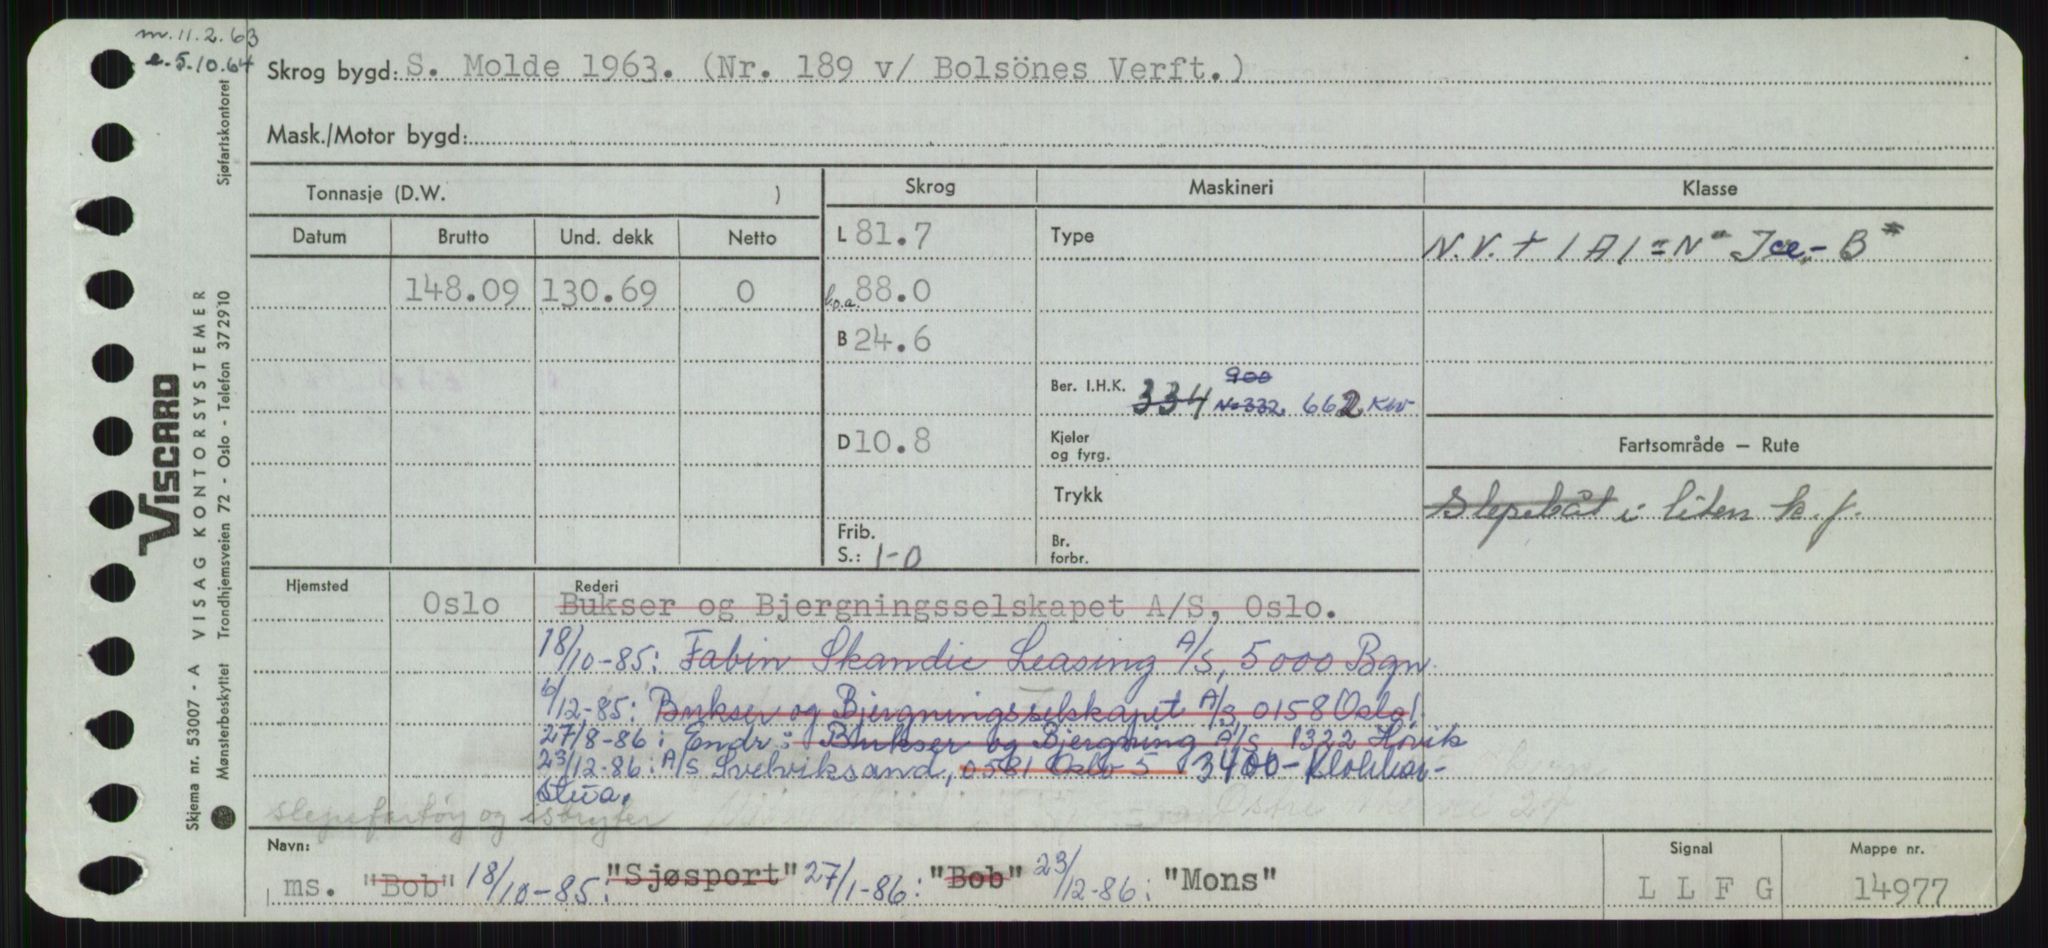 m. 11.2.63
e. 5.10.64
Skrog bygd: S. Molde 1963. (Nr. 189 v/ Bolsönes Verft.)
Mask./Motor bygd:
Tonnasje (D.W. )
Skrog
Maskineri
Klasse
Datum Brutto Und. dekk Netto
L 81.7
Type
N.V. + 1A1 "N" Ice-B*
148.09 130.69 0
l.o.a. 88.0
B 24.6
Ber. I.H.K. 334 900 No 332 662 KW
D 10.8
Kjeler og fyrg.
Fartsområde – Rute
Trykk
Slepebåt i liten k.f.
Frib.
S.: 1-0
Br. forbr.
Hjemsted
Rederi
Oslo
Bukser og Bjergningsselskapet A/S, Oslo.
18/10-85: Fabin Skandic Leasing A/S, 5000 Bgn.
6/12-85: Bukser og Bjergningsselskapet A/S, 0158 Oslo 1.
27/8-86: Endr: Bukser og Bjergning A/S 1322 Høvik
23/12-86: A/S Svelviksand, 0581 Oslo 5 3400-Klokkar-
stua.
slepefartøy og isbryter
Navn:
ms. "Bob" 18/10-85: "Sjøsport" 27/1-86: "Bob" 23/12-86: "Mons"
Signal
L L F G
Mappe nr.
14977
Sjøfartskontoret
VISCARD
VISAG KONTORSYSTEMER
Trondhjemsveien 72 - Oslo - Telefon 372910
Skjema nr. 53007 - A
Mønsterbeskyttet